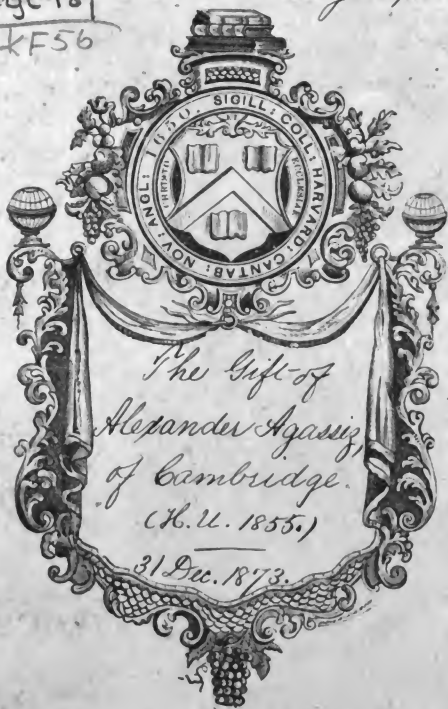 KF56
SIGILL: COLL: HARVARD: CANTAB: NOV: ANGL: 1650.
CHRISTO ECCLESIAE
The Gift of
Alexander Agassiz,
of Cambridge.
(H. U. 1855.)
31 Dec. 1873.